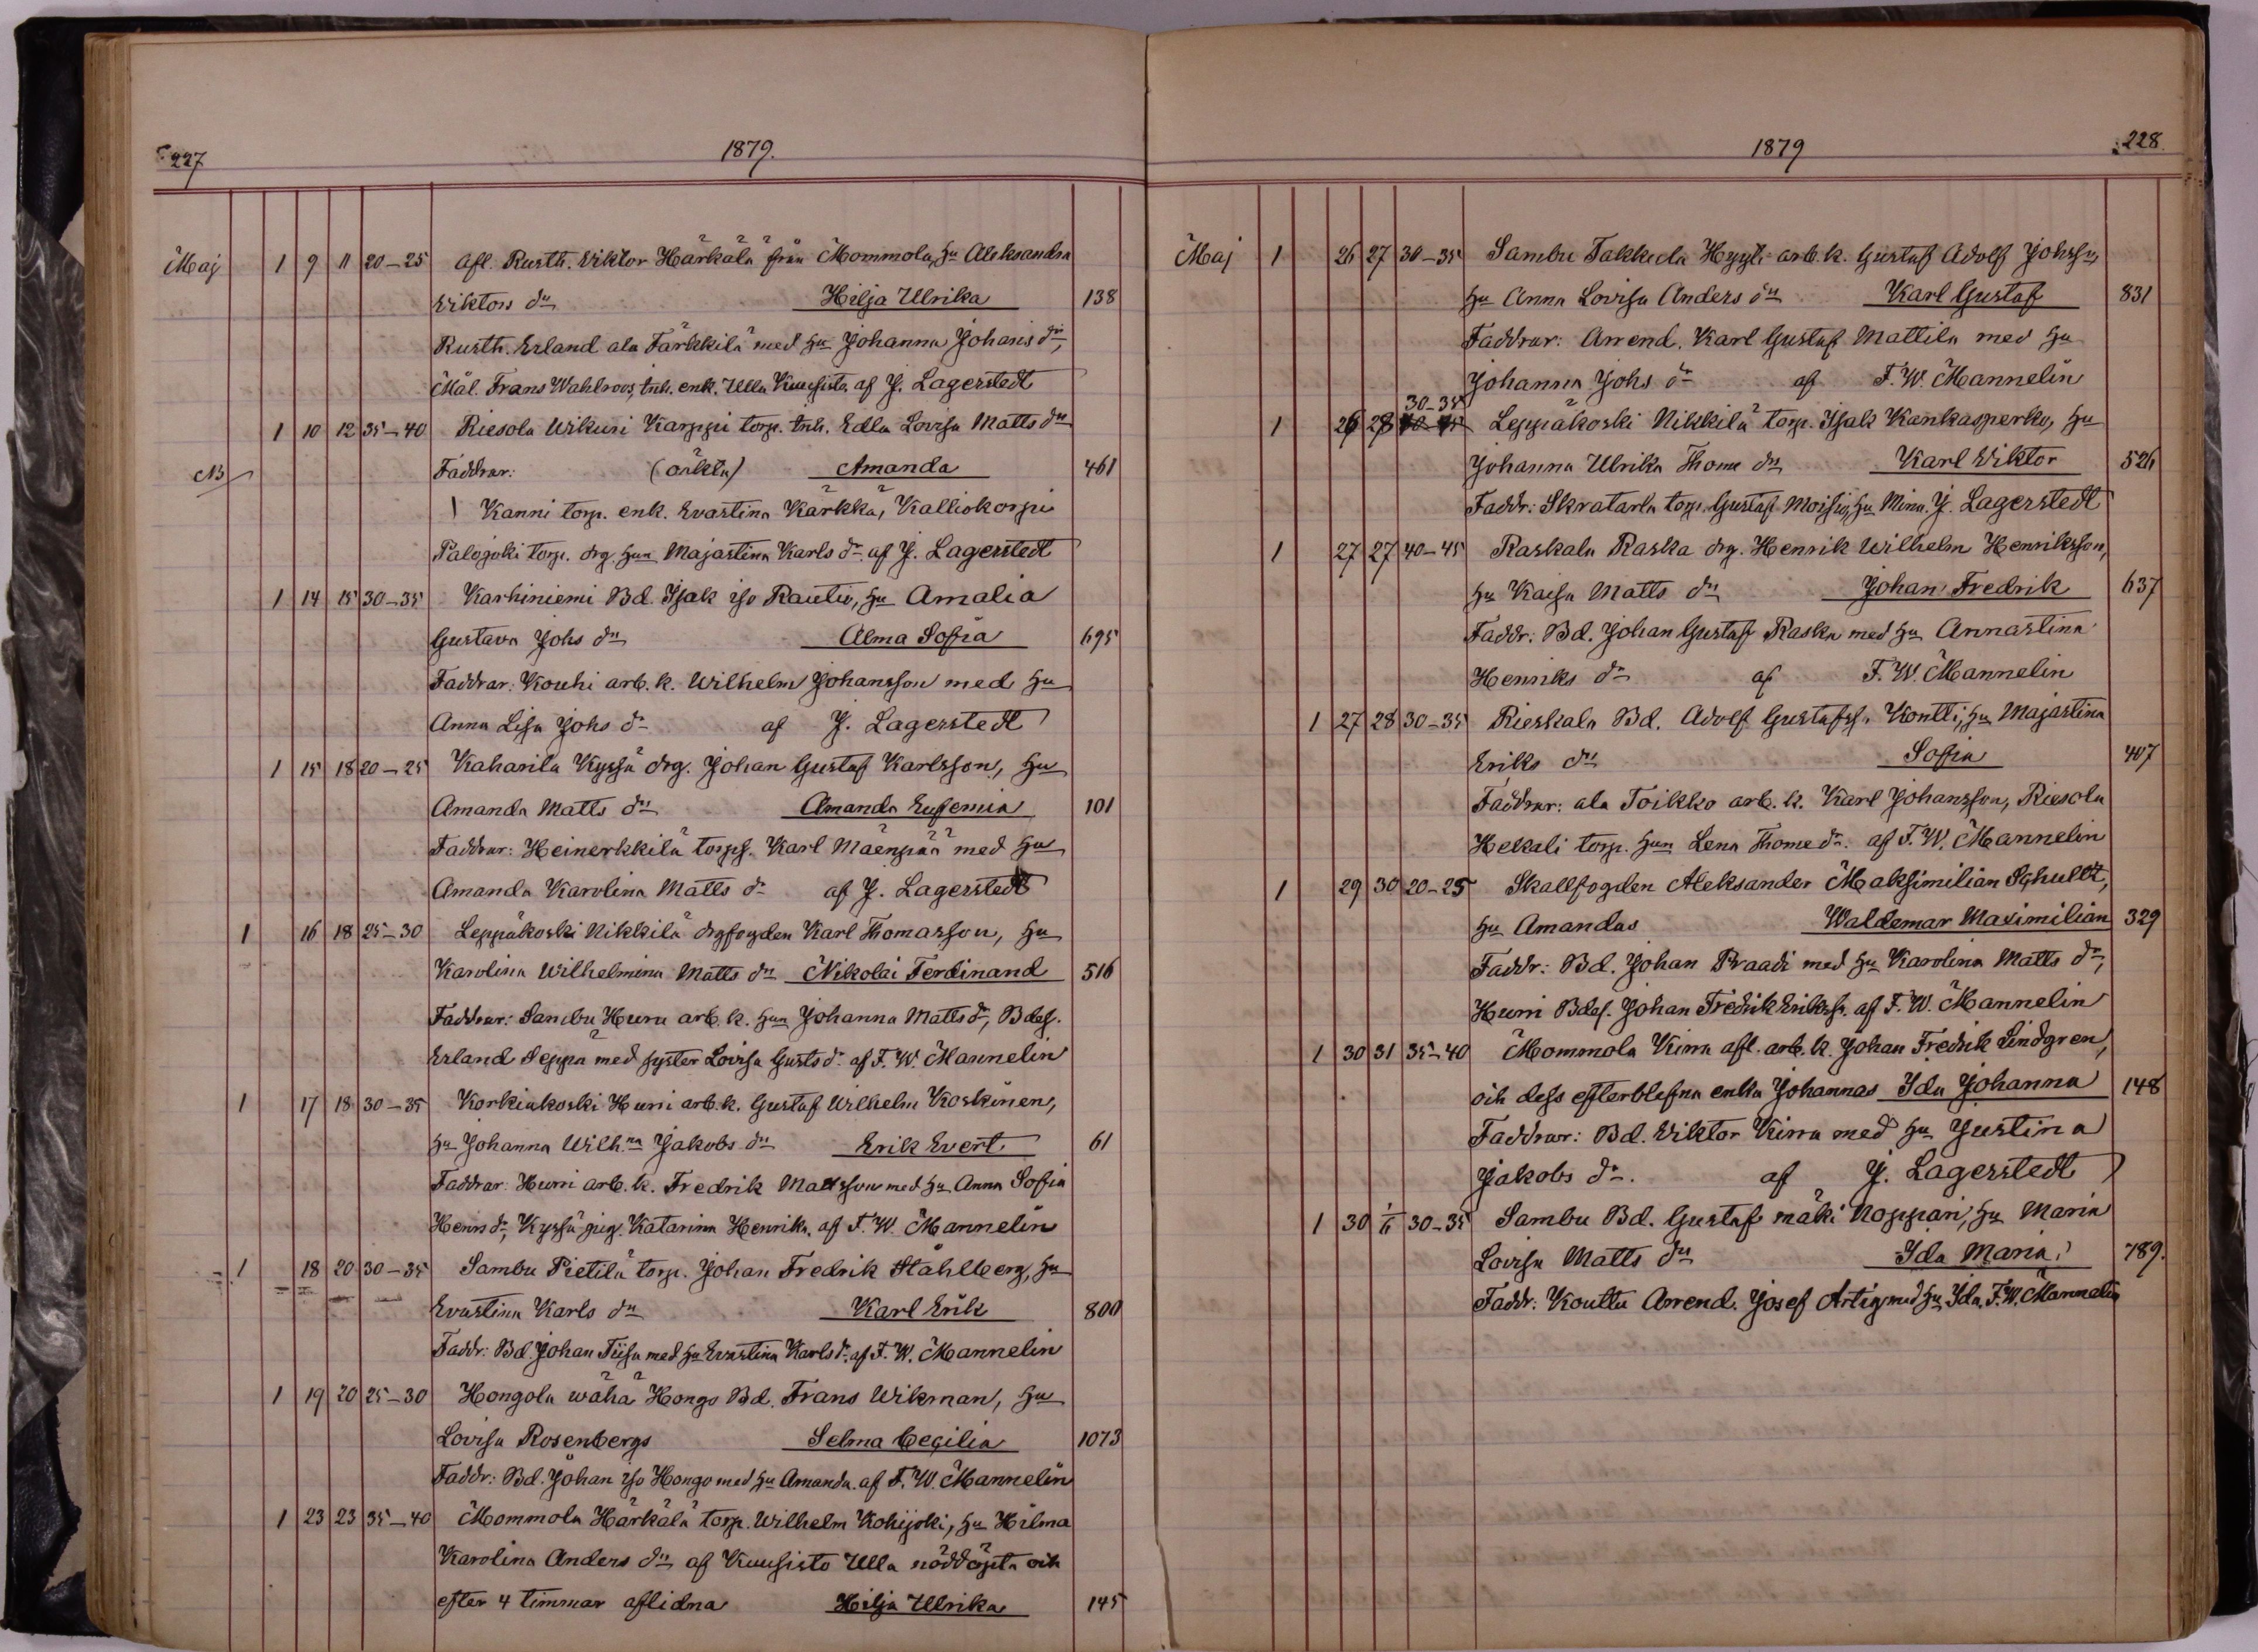 227 1879.
Maj 1 9 11 20-25 Afl. Rusth. Viktor Härkälä från Mommola, hu Aleksandra
Viktors dr Hilja Ulrika 138
Rusth. Erland ala Färkkilä med hu Johanna Johans dr,
Mål. Frans Wahlroos, inh. enk. Ulla Kuusisto, af J. Lagerstedt
1 10 12 35-40 Riesola Wikuri Karppi torp. inh. Edla Lovisa Matts drs
NB Faddrar: (oäkta) Amanda 461
Kanni torp. enk. Evastina Kärkkä, Kalliokorpi
Palojoki torp. drg. hun Majastina Karls dr. af J. Lagerstedt
1 14 15 30-35 Karhiniemi Bd. Isak iso Rautio, hu Amalia
Gustava Johs drs Alma Sofia 695
Faddrar: Kouhi arb. k. Wilhelm Johansson med hu
Anna Lisa Johs dr af J. Lagerstedt
1 15 18 20-25 Kaharila Kyssä drg. Johan Gustaf Karlsson, hu
Amanda Matts drs Amanda Eufemia 101
Faddrar: Heinerkkilä torps. Karl Mäenpää med hu
Amanda Karolina Matts dr af J. Lagerstedt
1 16 18 25-30 Leppäkoski Nikkilä drgfogden Karl Thomasson, hu
Karolina Wilhelmina Matts drs Nikolai Ferdinand 516
Faddrar: Sambu Hurri arb. k. hun Johanna Matts dr, Bdes.
Erland Seppä med syster Lovisa Gusts dr af F. W. Mannelin
1 17 18 30-35 Korkiakoski Hurri arb. k. Gustaf Wilhelm Koskinen,
hu Johanna Wilh.na Jakobs drs Erik Evert 61
Faddrar: Hurri arb. k. Fredrik Mattsson med hu Anna Sofia
Henrs dr, Kyssä pig. Katarina Henrika, af F. W. Mannelin
1 18 20 30-35 Sambu Pietilä torp. Johan Fredrik Ståhlberg, hu
Evastina Karls drs Karl Erik 800
Faddr: Bd. Johan Tiisa med hu Evastina Karls dr. af F. W. Mannelin
1 19 20 25-30 Hongola wähä Hongo Bd. Frans Wikman, hu
Lovisa Rosenbergs Selma Cecilia 1073
Faddr: Bd. Johan iso Hongo med hu Amanda. af F. W. Mannelin
1 23 23 35-40 Mommola Härkälä torp. Wilhelm Kohijoki, hu Hilma
Karolina Anders drs af Kuusisto Ulla nöddöpta och
efter 4 timmar aflidna Hilja Ulrika 145
1879 228.
Maj 1 26 27 30-35 Sambu Takkula Hyyli arb. k. Gustaf Adolf Johssn,
hu Anna Lovisa Anders drs Karl Gustaf 831
Faddrar: Arrend. Karl Gustaf Mattila med hu
Johanna Johs dr af F. W. Mannelin
30-35
1 26 28 Leppäkoski Nikkilä torp. Isak Kankasperko, hu
Johanna Ulrika Thome drs Karl Viktor 526
Faddr: Skratarla torp. Gustaf Moisio, hu Mina. J. Lagerstedt
1 27 27 40-45 Raskala Raska drg. Henrik Wilhelm Henriksson,
hu Kaisa Matts drs Johan Fredrik 637
Faddr: Bd. Johan Gustaf Raska med hu Annastina
Henriks dr af F. W. Mannelin
1 27 28 30-35 Rieskala Bd. Adolf Gustafss. Kontti, hu Majastina
Eriks drs Sofia 407
Faddrar: ala Toikko arb. k. Karl Johansson, Riesola
Hekali torp. hun Lena Thome dr. af F. W. Mannelin
1 29 30 20-25 Skallfogden Aleksander Maksimilian Schultz,
hu Amandas Waldemar Maximilian 329
Faddr: Bd. Johan Praadi med hu Karolina Matts dr,
Hurri Bdes. Johan Fredrik Erikss. af F. W. Mannelin
1 30 31 35-40 Mommola Kirra afl. arb. k. Johan Fredrik Lindgren,
och dess efterblefna enka Johannas Ida Johanna 148
Faddrar: Bd. Viktor Kirra med hu Justina
Jakobs dr. af J. Lagerstedt
1 30 1/6 30-35 Sambu Bd. Gustaf mäki Noppari, hu Maria
Lovisa Matts drs Ida Maria 789.
Faddr: Kouttu Arrend. Josef Artig med hu Ida. F. W. Mannelin